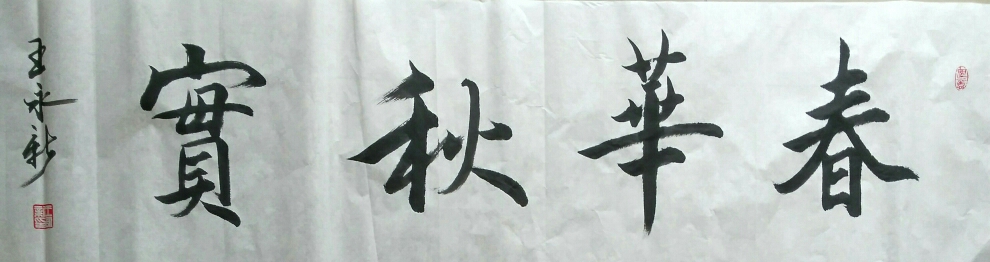 春華秋實
王永新